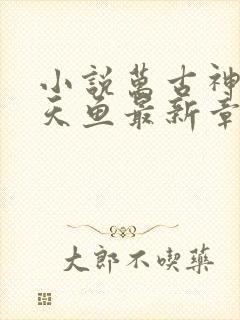 小說萬古神
天魚最新章
大郎不喫藥